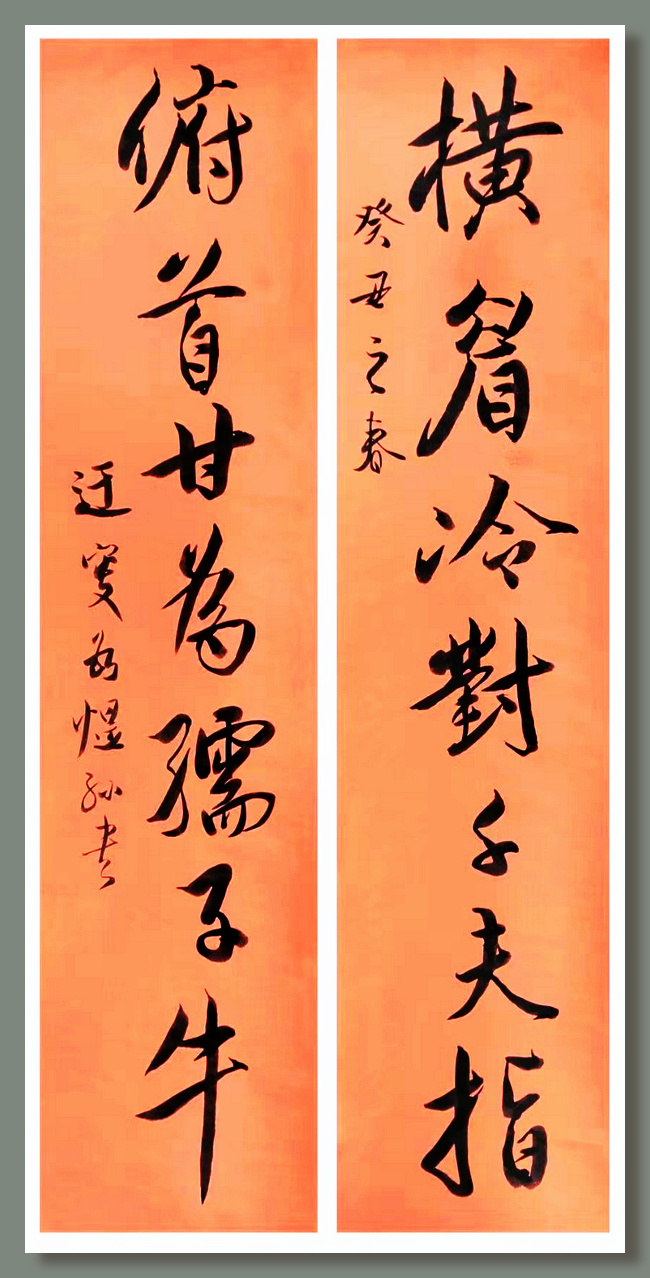 橫眉冷對千夫指
癸丑之春
俯首甘為孺子牛
迂叟為煜孙书